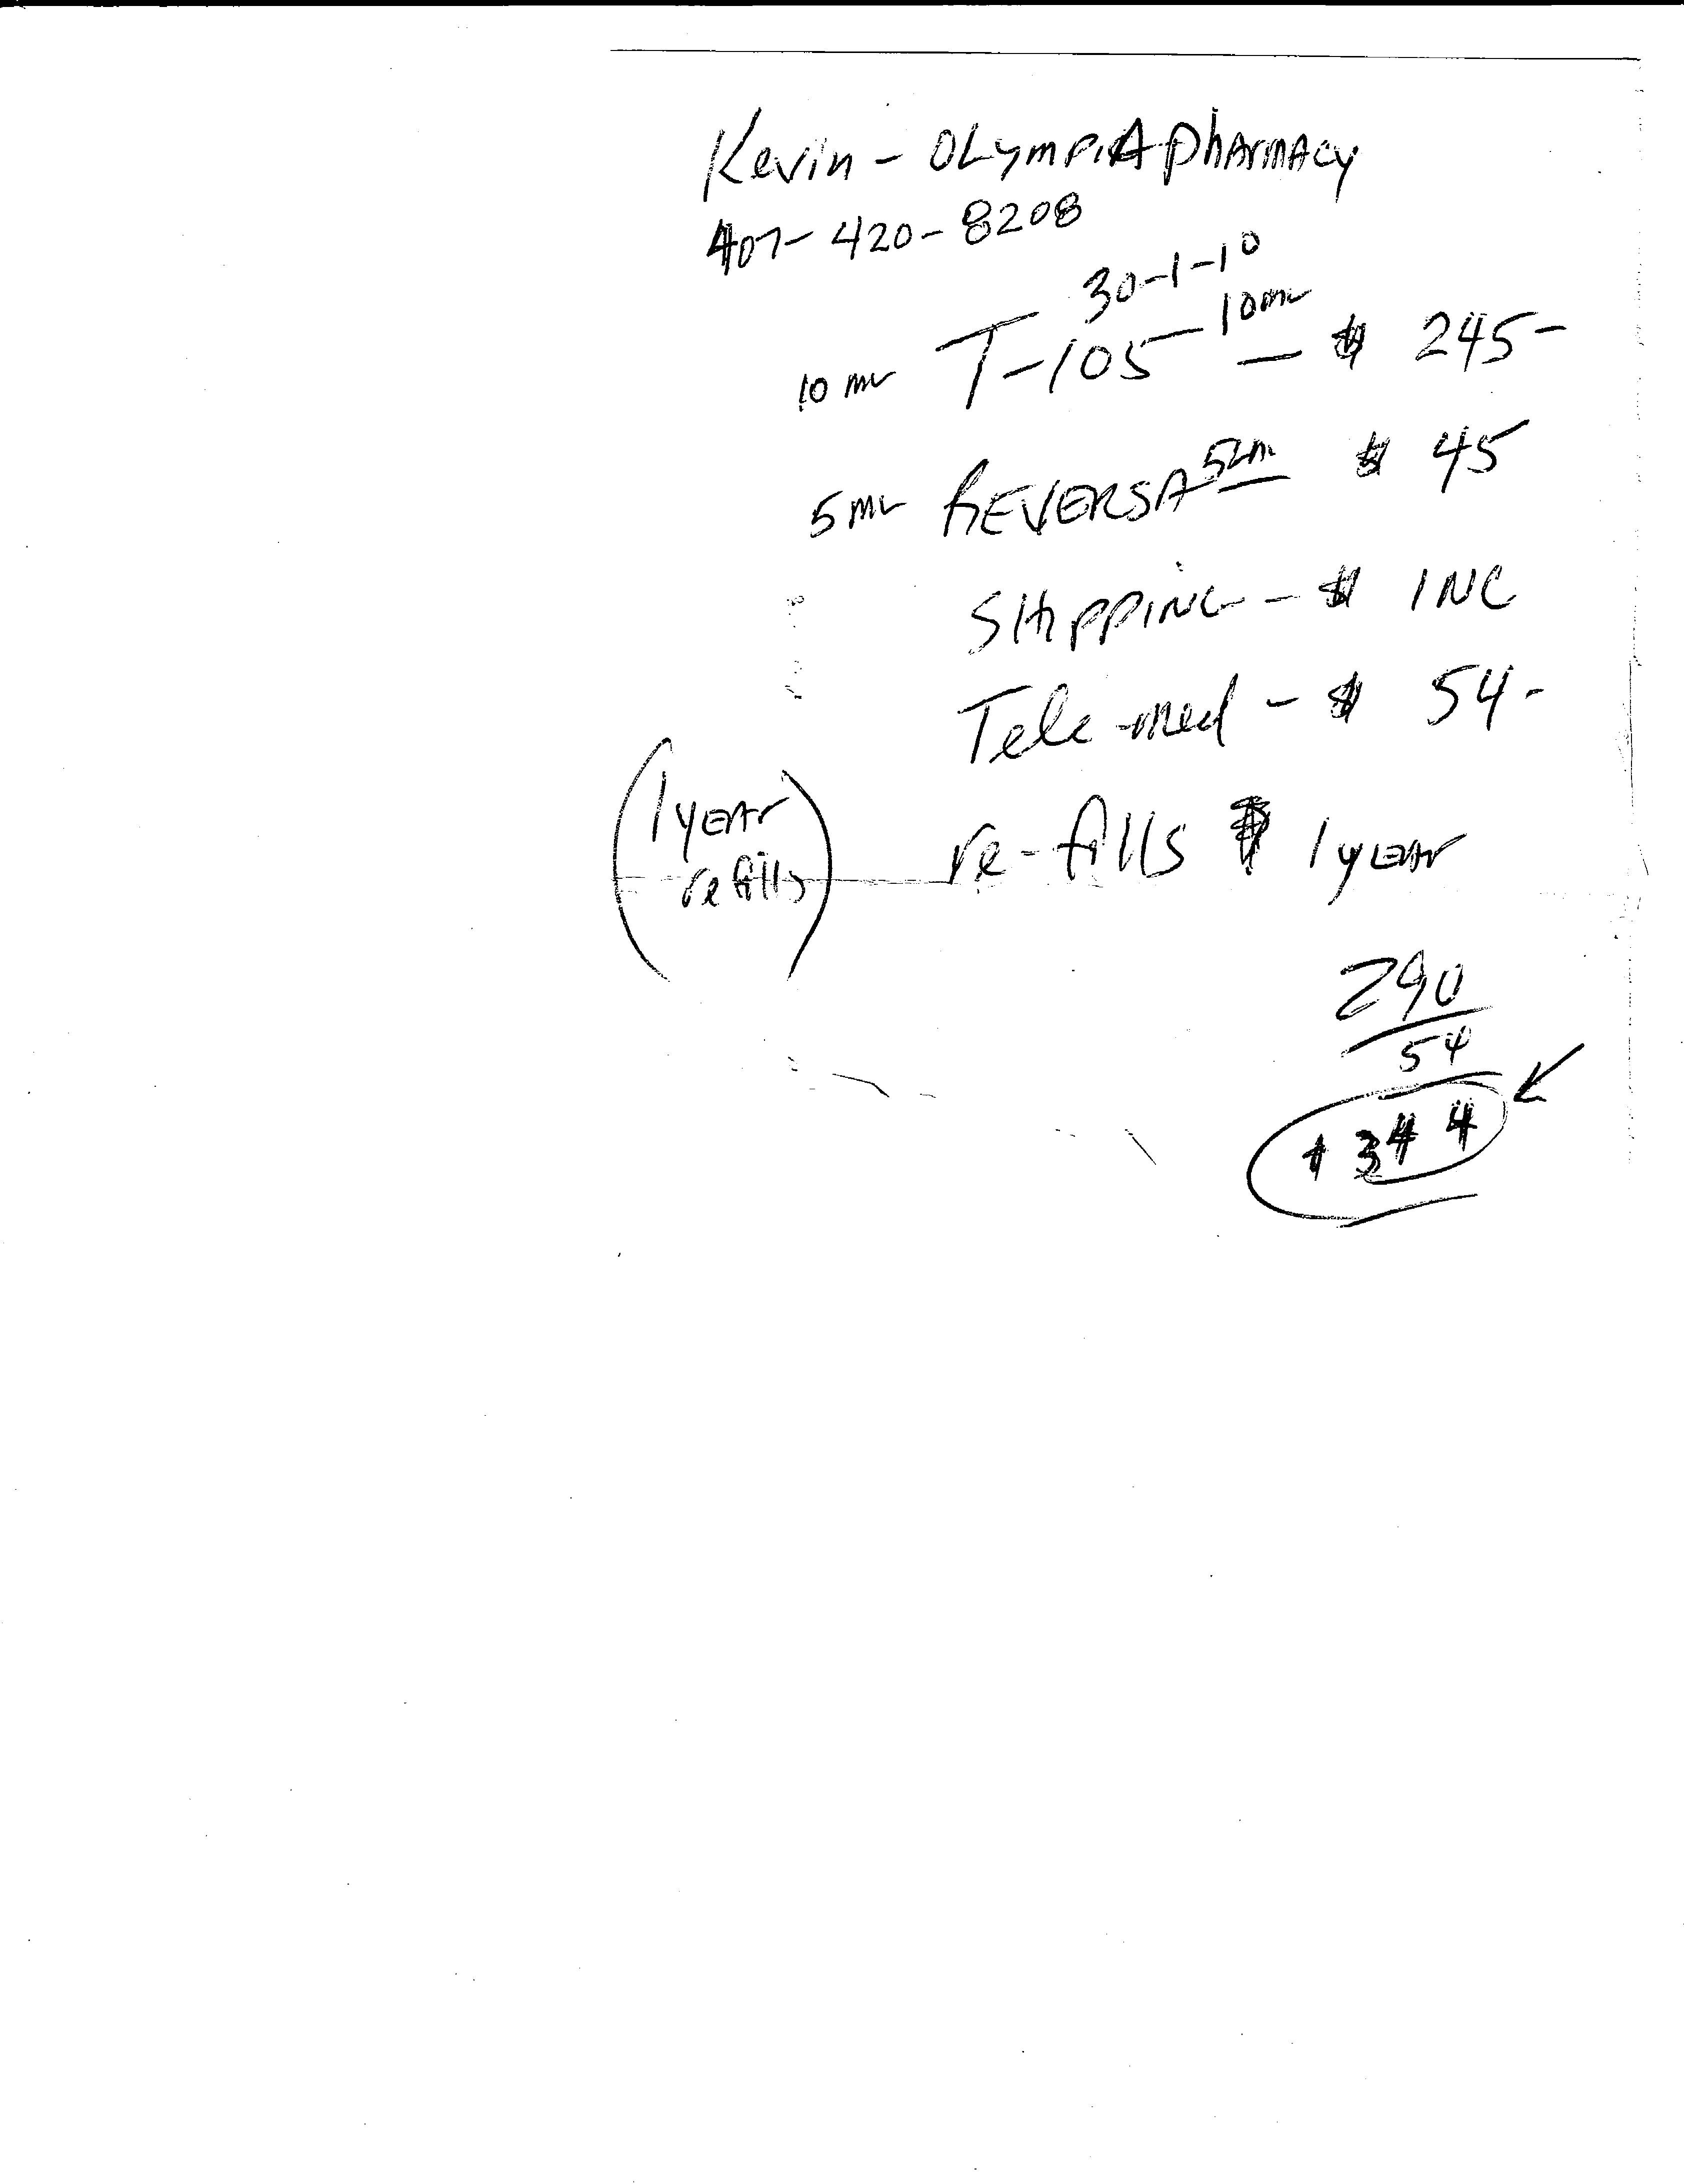 Kevin - OLympiA phArmAcy
407-420-8208
30-1-10
10 ml T-105 10ml - $ 245-
5 ml REVERSA $ 45
SHipping - $ INC
Tele-med - $ 54-
(1 yEAr refills) re-fills $ 1 yEAr
290
54
$ 344